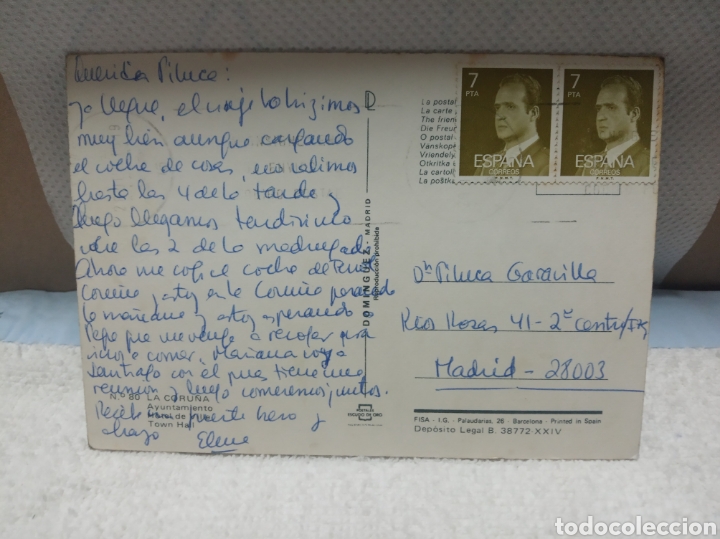 Querida Piluca:
Ya llegué, el viaje lo hizimos
muy bien aunque cargando
el coche de cosas, no salimos
hasta las 4 de la tarde y
luego llegamos tardísimo
sobre las 2 de la madrugada
Ahora me cogí el coche de
Coruña, estoy en la Coruña pasando
la mañana y estoy esperando
Pepe que me venga a recoger para
irnos a comer. Mañana voy a
Santiago con él pues tiene una
reunión y luego comeremos juntos.
Recibe un fuerte beso y
abrazo Elena
N.º 80 LA CORUÑA
Ayuntamiento
Town Hall
DOMINGUEZ - MADRID
Reproducción prohibida
POSTALES
ESCUDO DE ORO
La postal
La carte
The friend
Die Freun
O postal
Vanskop
Vriendely
Otkritka
La cartoli
La poštka
7
PTA
ESPAÑA
CORREOS
F.N.M.T.
7
PTA
ESPAÑA
CORREOS
F.N.M.T.
Dª Piluca Garavilla
Ríos Rosas 41-2º
Madrid - 28003
FISA - I.G. - Palaudarias, 26 - Barcelona - Printed in Spain
Depósito Legal B. 38772-XXIV
todocoleccion